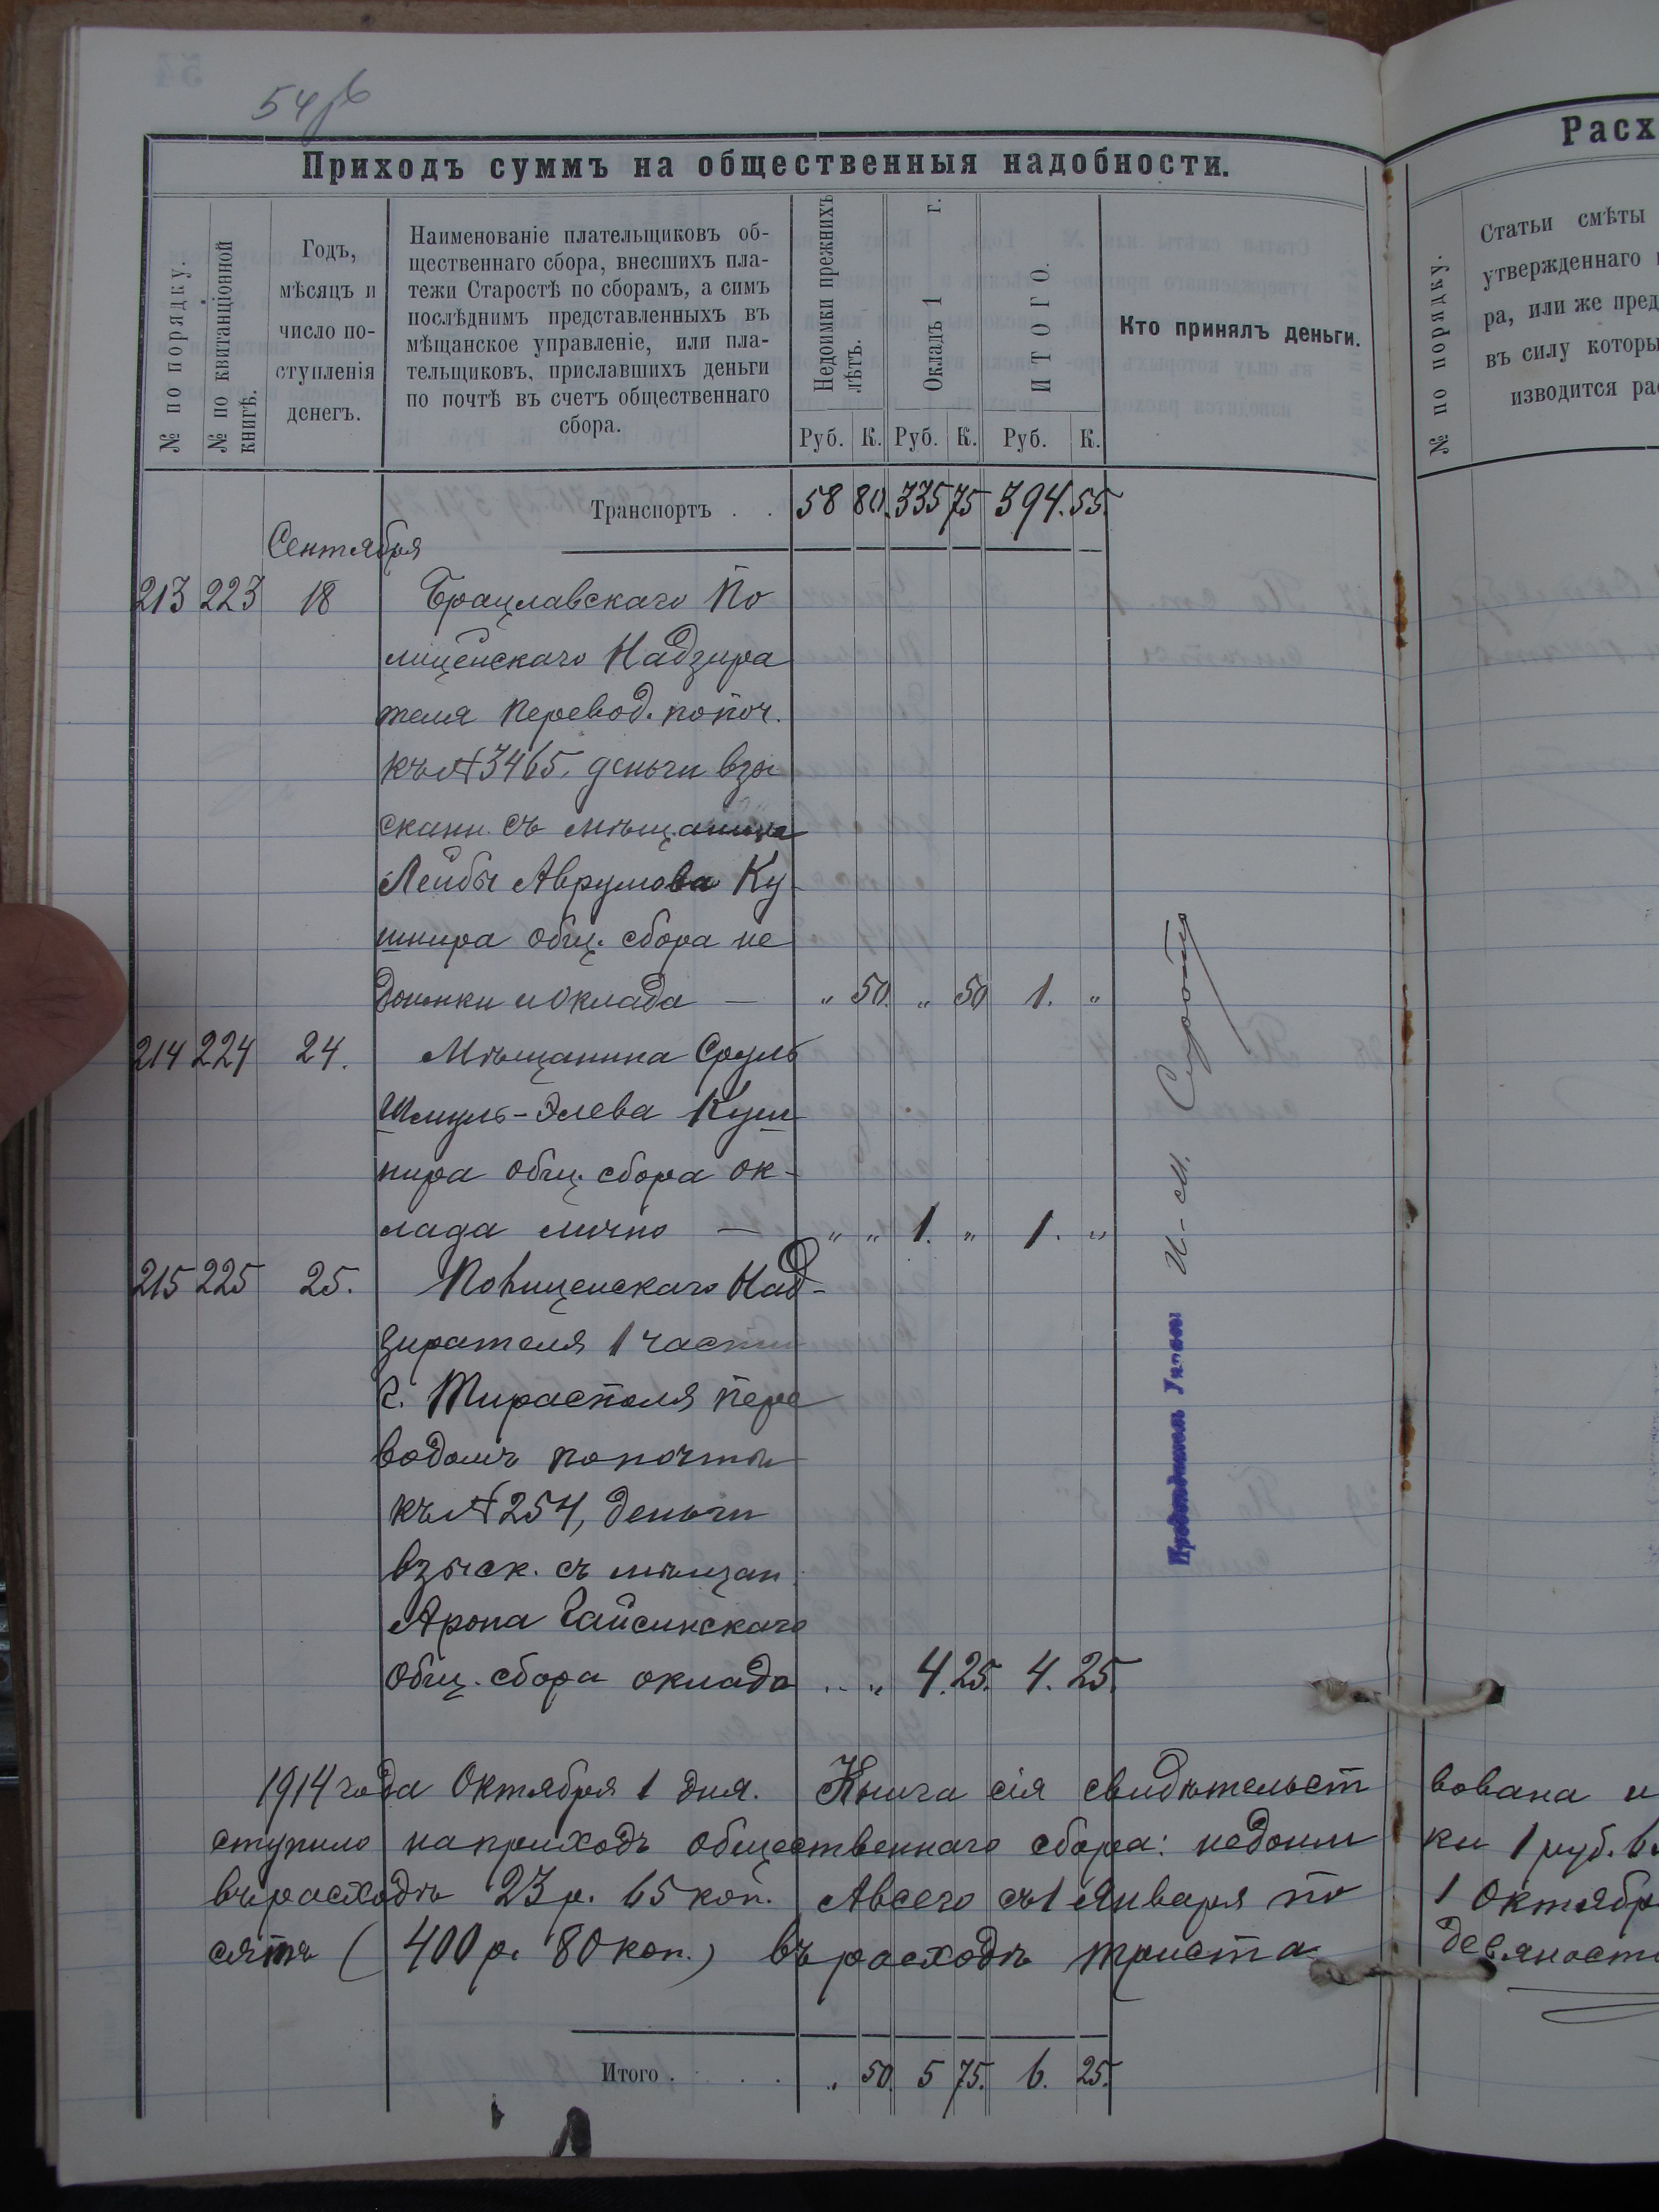 54об
Приходъ суммъ на общественныя надобности.
№ по порядку.
№ по квитанціонной
книгѣ.
Годъ,
мѣсяцъ и
число по-
ступленія
денегъ.
Наименованіе плательщиковъ об-
щественнаго сбора, внесшихъ пла-
тежи Старостѣ по сборамъ, а симъ
послѣднимъ представленныхъ въ
мѣщанское управленіе, или пла-
тельщиковъ, приславшихъ деньги
по почтѣ въ счетъ общественнаго
сбора.
Недоимки прежнихъ
лѣтъ.
Окладъ 1 г.
ИТОГО.
Руб. К. Руб. К. Руб. К.
Кто принялъ деньги.
Транспортъ . . 58 80. 335 75 394. 55.
Сентября
213 223 18 Брацлавскаго По
лицейскаго Надзира
теля перевод. по поч.
къ № 3465, деньги взы
сканн. съ мѣщанина
Лейбы Аврумова Ку-
шнира общ. сбора не
доимки и оклада — „ 50. „ 50 1. „
214 224 24. Мѣщанина Сруль
Шмуль-Элева Куш
нира общ. сбора ок-
лада лично — „ „ 1. „ 1. „
215 225 25. Полицейскаго Над-
зирателя 1 части
г. Тирасполя пере
водомъ по почтѣ
къ № 254, деньги
взыск. съ мѣщан.
Арона Гайсинскаго
общ. сбора оклада „ „ 4. 25. 4. 25.
И-М. Сирота
1914 года Октября 1 дня. Книга сія свидѣтельст вована и
ступило на приходъ общественнаго сбора: недоим ки 1 руб.
въ расходъ 23 р. 65 коп. А всего съ 1 Января по 1 Октябр
сятъ (400 р. 80 коп.) въ расходъ триста девяност
Итого . . . . „ 50. 5 75. 6. 25.
Расх
№ по порядку.
Статьи смѣты
утвержденнаго
ра, или же пред
въ силу которы
изводится рас